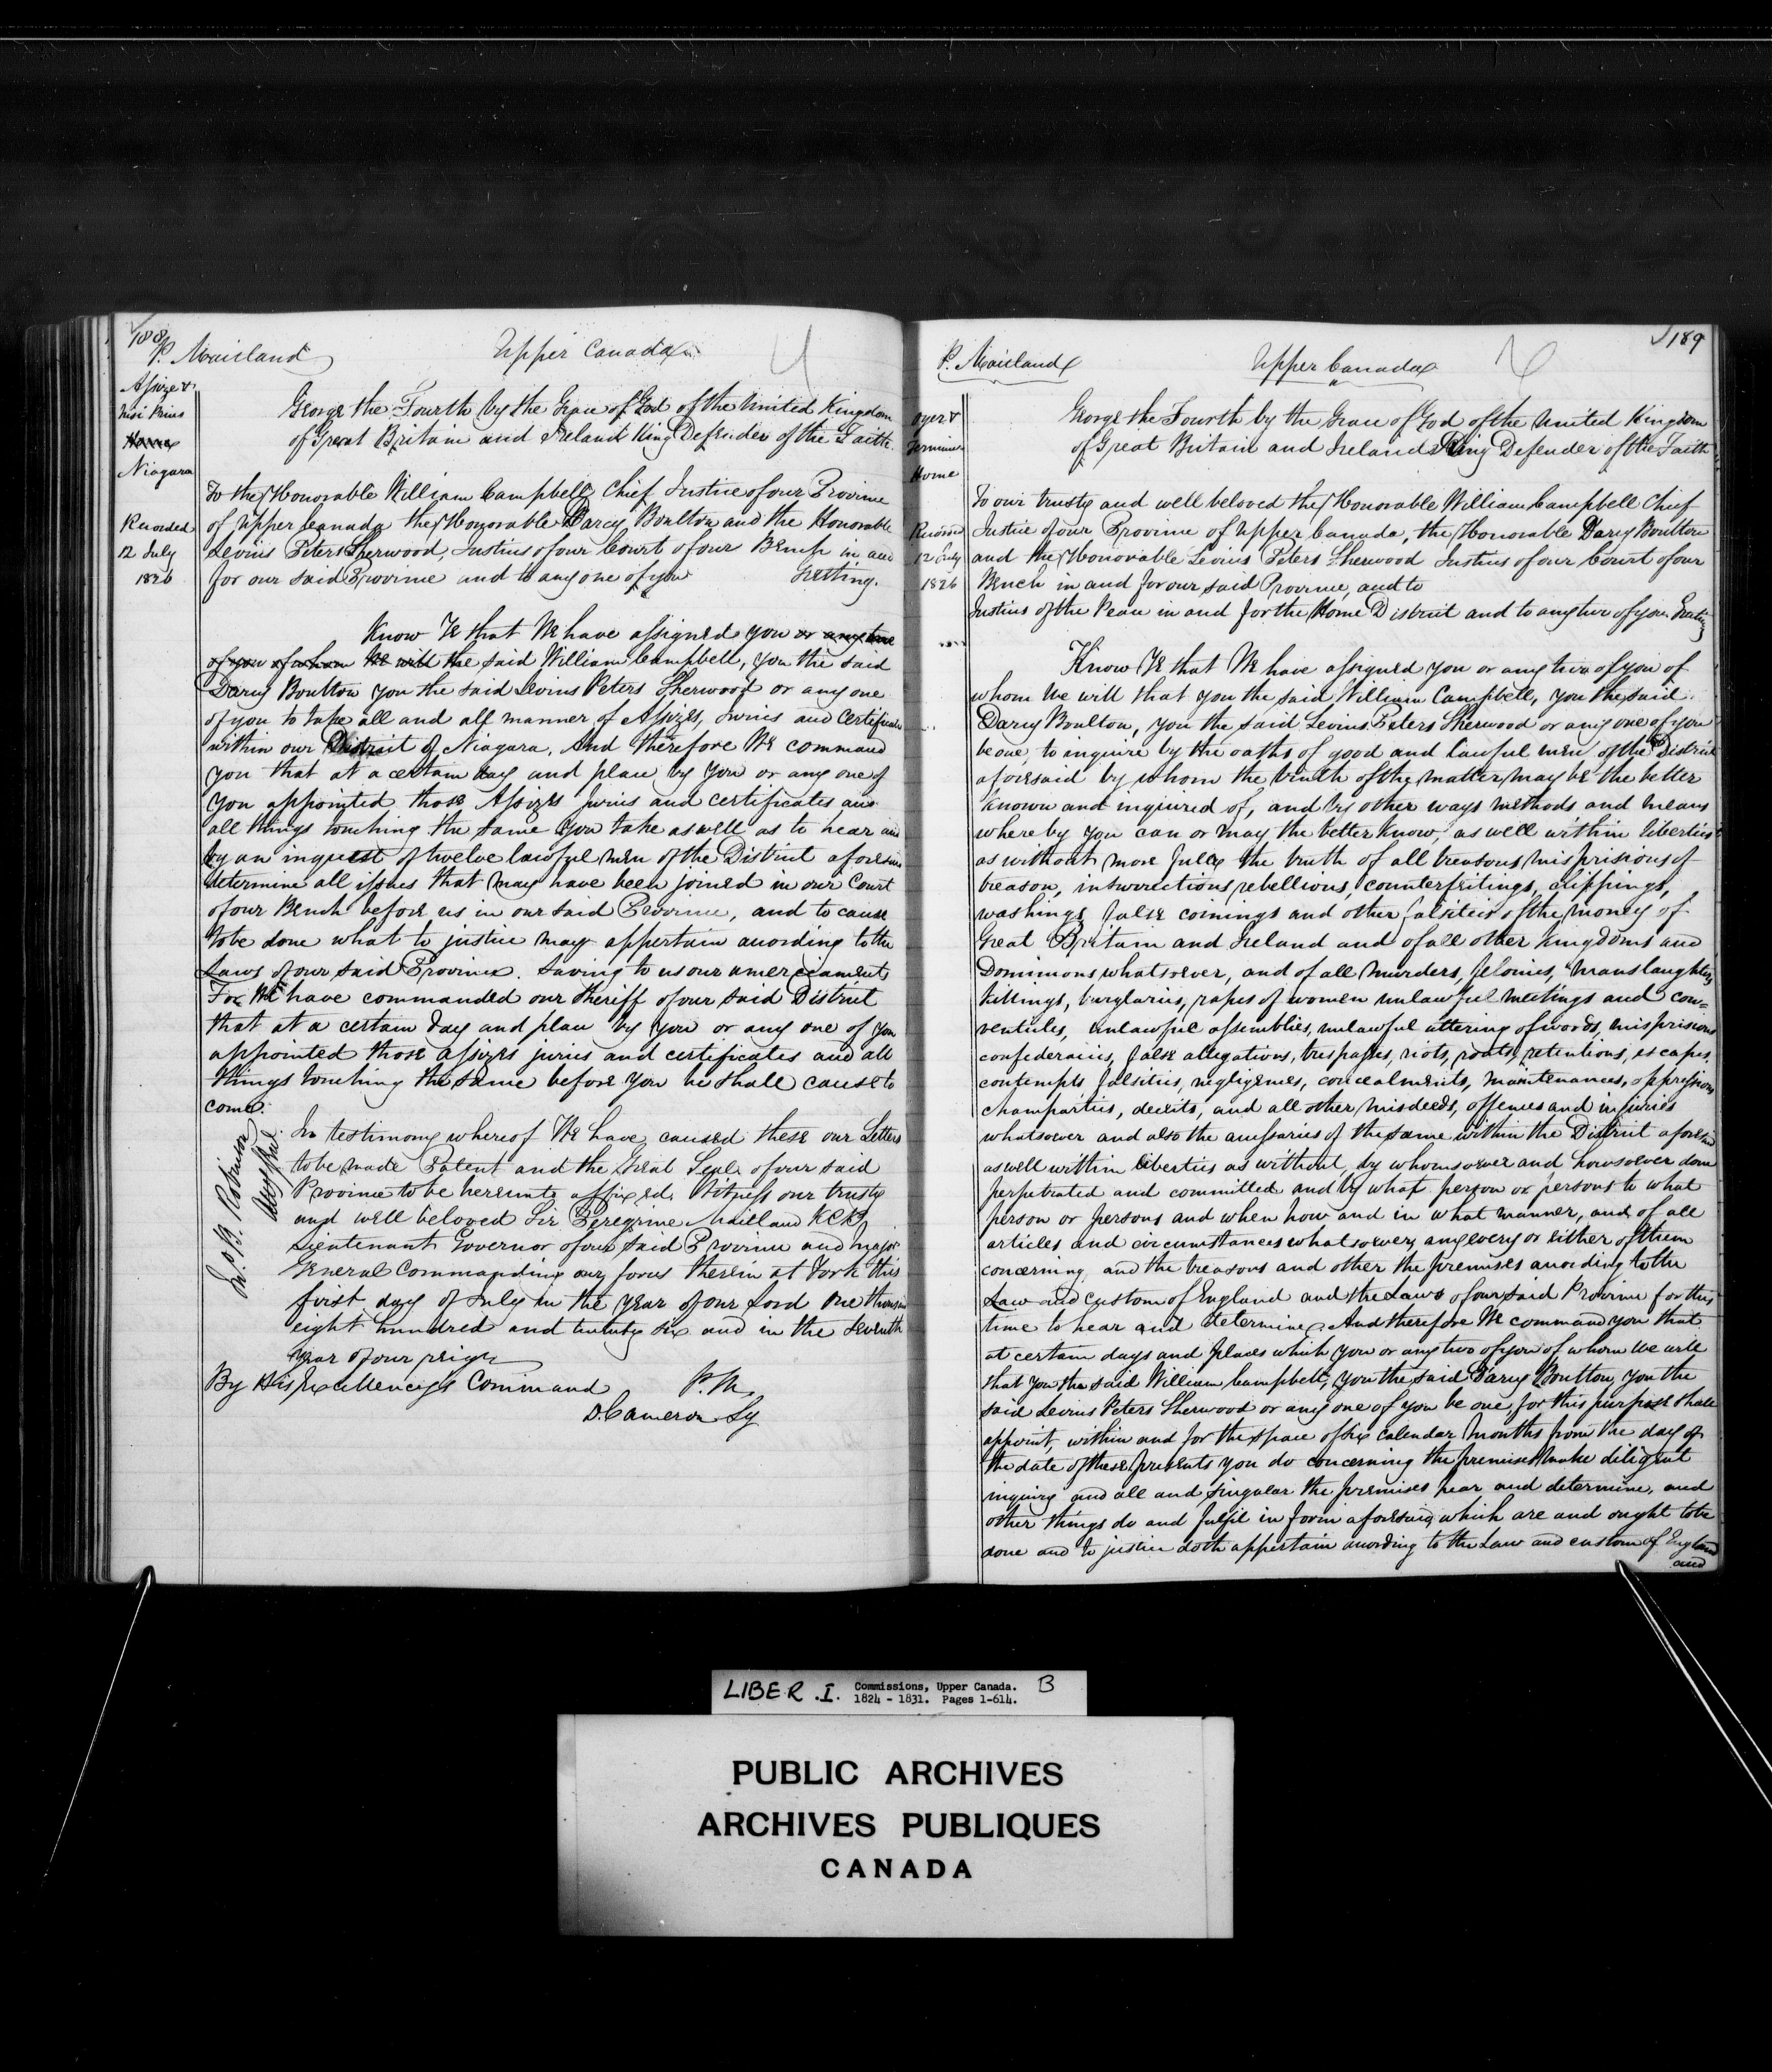 188
P. Maitland
Upper Canada
Assize &
Nisi Prius
Home
Niagara
Recorded
12 July
1826
George the Fourth by the Grace of God of the United Kingdom
of Great Britain and Ireland King Defender of the Faith.
To the Honorable William Campbell, Chief Justice of our Province
of Upper Canada the Honorable Darcy Boulton and the Honorable
Levius Peters Sherwood, Justices of our Court of our Bench in and
for our said Province and to any one of you Greeting.
Know Ye that We have assigned you or any two
of you of whom We will the said William Campbell, you the said
Darcy Boulton you the said Levius Peters Sherwood or any one
of you to take all and all manner of Assizes, Juries and Certificates
within our District of Niagara. And therefore We command
you that at a certain day and place by you or any one of
you appointed those Assizes Juries and certificates and
all things touching the same you take as well as to hear and
by an inquest of twelve lawful men of the District aforesaid
determine all issues that may have been joined in our Court
of our Bench before us in our said Province, and to cause
to be done what to justice may appertain according to the
Laws of our said Province. Saving to us our amerciaments
For We have commanded our Sheriff of our said District
that at a certain day and place by you or any one of you
appointed those assizes juries and certificates and all
things touching the same before you he shall cause to
come.
In testimony whereof We have caused these our Letters
to be made Patent and the Great Seal of our said
Province to be hereunto affixed. Witness our trusty
and well beloved Sir Peregrine Maitland KCB,
Lieutenant Governor of our said Province and Major
General Commanding our forces therein at York this
first day of July in the year of our Lord One thousand
eight hundred and twenty six and in the Seventh
year of our reign
Jno. B. Robinson
Atty Genl.
By His Excellency's Command P.M.
D. Cameron Sy
189
P. Maitland
Upper Canada
Oyer &
Terminer
Home
Recorded
12 July
1826
George the Fourth by the Grace of God of the United Kingdom
of Great Britain and Ireland King Defender of the Faith
To our trusty and well beloved the Honorable William Campbell Chief
Justice of our Province of Upper Canada, the Honorable Darcy Boulton
and the Honorable Levius Peters Sherwood Justices of our Court of our
Bench in and for our said Province, and to
Justices of the Peace in and for the Home District and to any two of you Greeting
Know Ye that We have assigned you or any two of you of
whom We will that you the said William Campbell, you the said
Darcy Boulton, you the said Levius Peters Sherwood or any one of you
be one, to inquire by the oaths of good and lawful men of the District
aforesaid by whom the truth of the matter may be the better
known and inquired of, and by other ways methods and means
where by you can or may the better know, as well within liberties
as without more fully the truth of all treasons, misprisions of
treason, insurrections, rebellions, counterfeitings, clippings,
washings, false coinings and other falsities of the money of
Great Britain and Ireland and of all other Kingdoms and
Dominions whatsoever, and of all Murders, felonies, Manslaughters
Killings, burglaries, rapes of women unlawful meetings and con=
venticles, unlawful assemblies, unlawful uttering of words, misprisions
confederacies, false allegations, trespasses, riots, routs, retentions, escapes,
contempts falsities, negligences, concealments, maintenances, oppressions
champarties, deceits, and all other misdeeds, offences and injuries
whatsoever and also the accessaries of the same within the District aforesaid
as well within liberties as without, by whomsoever and howsoever done
perpetrated and committed and by what person or persons to what
person or persons and when how and in what manner, and of all
articles and circumstances whatsoever, any every or either of them
concerning and the treasons and other the premises according to the
Law and custom of England and the Laws of our said Province for this
time to hear and determine. And therefore We command you that
at certain days and places which you or any two of you of whom We will
that you the said William Campbell, you the said Darcy Boulton, you the
said Levius Peters Sherwood or any one of you be one, for this purpose shall
appoint, within and for the space of six calendar Months from the day of
the date of these presents you do concerning the premises make diligent
inquiry and all and singular the premises hear and determine, and
other things do and fulfil in form aforesaid, which are and ought to be
done and to justice doth appertain according to the Law and custom of England
and
LIBER .I. Commissions, Upper Canada. B
1824 - 1831. Pages 1-614.
PUBLIC ARCHIVES
ARCHIVES PUBLIQUES
CANADA